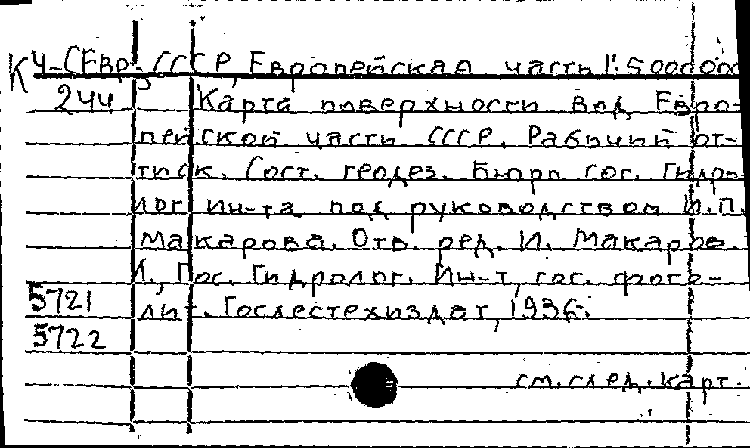 К Ч-СЕвр-СССР, Европейская часть 1:5000000
244 Карта поверхности вод Евро-
пейской части СССР. Рабочий от-
тиск. Сост. геодез. Бюро гос. Гидро-
лог ин-та под руководством И.П.
Макарова. Отв. ред. И. Макаров.
Л., Гос. Гидролог. Ин-т, гос. фото-
5721 лит. Гослестехиздат, 1936.
5722
см. след. карт.